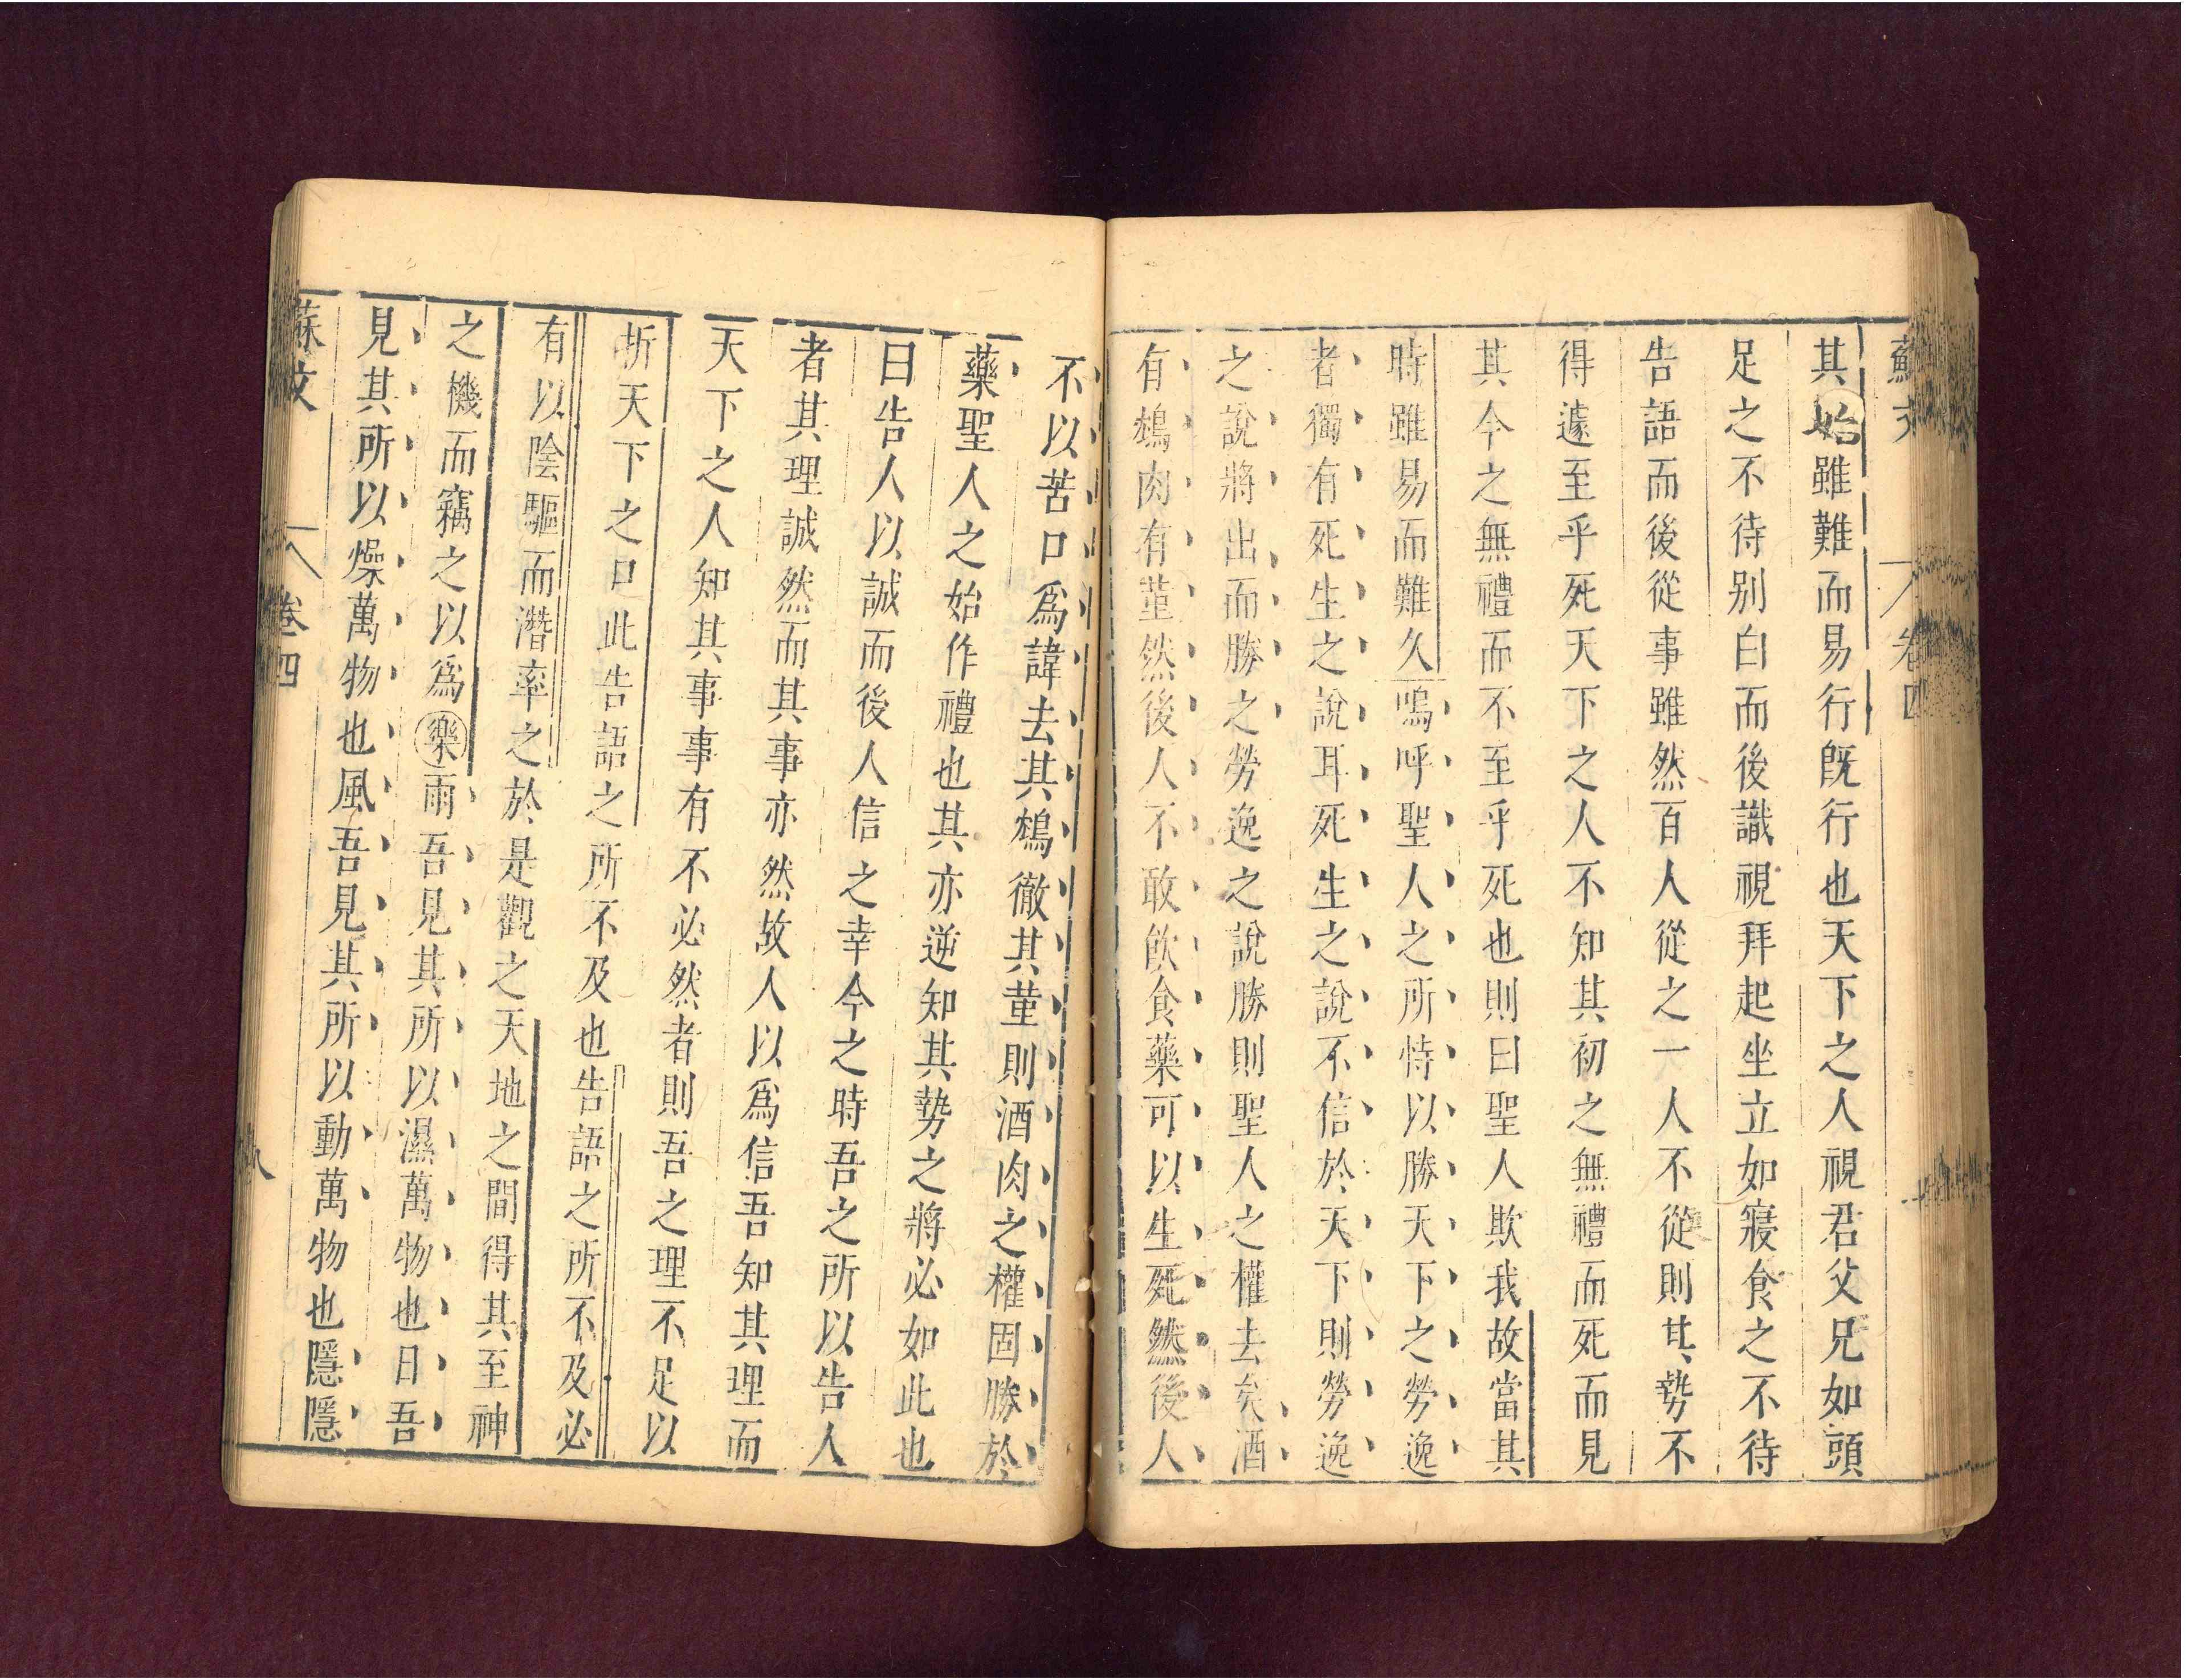 蘇文 卷四
其始雖難而易行既行也天下之人視君父兄如頭
足之不待别白而後識視拜起坐立如寢食之不待
告語而後從事雖然百人從之一人不從則其勢不
得遽至乎死天下之人不知其初之無禮而死而見
其今之無禮而不至乎死也則曰聖人欺我故當其
時雖易而難久嗚呼聖人之所恃以勝天下之勞逸
者獨有死生之說耳死生之說不信於天下則勞逸
之說將出而勝之勞逸之說勝則聖人之權去矣酒
有鴆肉有菫然後人不敢飲食藥可以生死然後人
不以苦口爲諱去其鴆徹其菫則酒肉之權固勝於
藥聖人之始作禮也其亦逆知其勢之將必如此也
曰告人以誠而後人信之幸今之時吾之所以告人
者其理誠然而其事亦然故人以爲信吾知其理而
天下之人知其事事有不必然者則吾之理不足以
折天下之口此告語之所不及也告語之所不及必
有以陰驅而潛率之於是觀之天地之間得其至神
之機而竊之以爲樂雨吾見其所以濕萬物也日吾
見其所以燥萬物也風吾見其所以動萬物也隱隱
蘇文 卷四 八